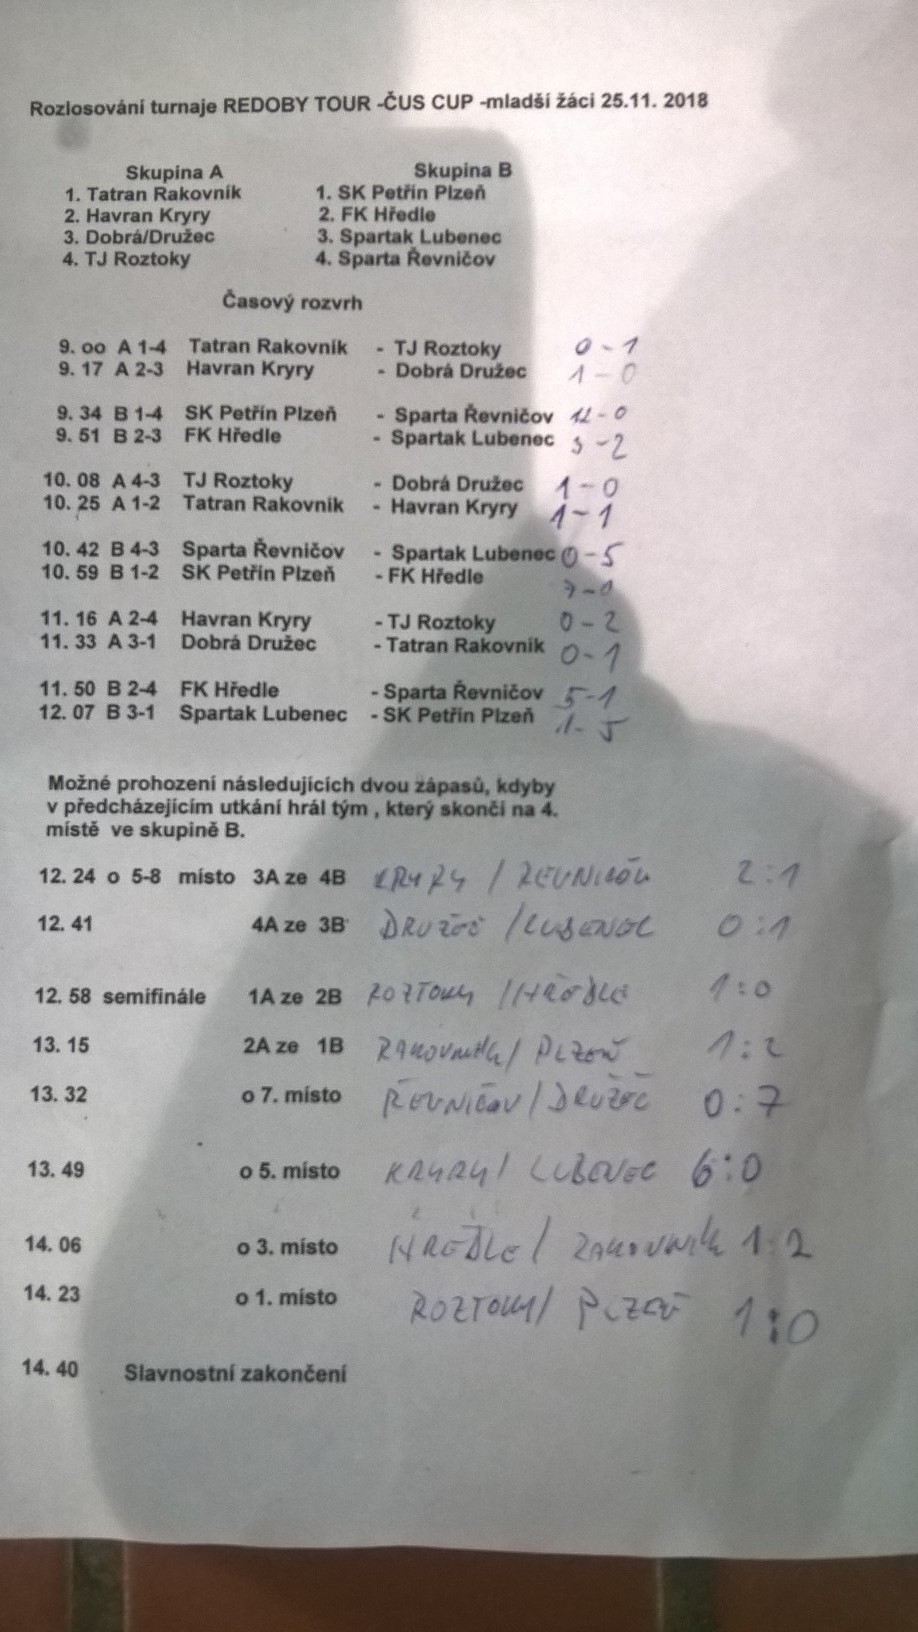 Rozlosování turnaje REDOBY TOUR -ČUS CUP -mladší žáci 25.11. 2018
Skupina A Skupina B
1. Tatran Rakovník 1. SK Petřín Plzeň
2. Havran Kryry 2. FK Hředle
3. Dobrá/Družec 3. Spartak Lubenec
4. TJ Roztoky 4. Sparta Řevničov
Časový rozvrh
9. oo A 1-4 Tatran Rakovník - TJ Roztoky 0-1
9. 17 A 2-3 Havran Kryry - Dobrá Družec 1-0
9. 34 B 1-4 SK Petřín Plzeň - Sparta Řevničov 12-0
9. 51 B 2-3 FK Hředle - Spartak Lubenec 3-2
10. 08 A 4-3 TJ Roztoky - Dobrá Družec 1-0
10. 25 A 1-2 Tatran Rakovník - Havran Kryry 1-1
10. 42 B 4-3 Sparta Řevničov - Spartak Lubenec 0-5
10. 59 B 1-2 SK Petřín Plzeň - FK Hředle 7-0
11. 16 A 2-4 Havran Kryry - TJ Roztoky 0-2
11. 33 A 3-1 Dobrá Družec - Tatran Rakovník 0-1
11. 50 B 2-4 FK Hředle - Sparta Řevničov 5-1
12. 07 B 3-1 Spartak Lubenec - SK Petřín Plzeň 1-5
Možné prohození následujících dvou zápasů, kdyby
v předcházejícím utkání hrál tým , který skončí na 4.
místě ve skupině B.
12. 24 o 5-8 místo 3A ze 4B KRYRY / ŘEVNIČOV 2:1
12. 41 4A ze 3B DRUŽEC / LUBENEC 0:1
12. 58 semifinále 1A ze 2B ROZTOKY / HŘEDLE 1:0
13. 15 2A ze 1B RAKOVNÍK / PLZEŇ 1:2
13. 32 o 7. místo ŘEVNIČOV / DRUŽEC 0:7
13. 49 o 5. místo KRYRY / LUBENEC 6:0
14. 06 o 3. místo HŘEDLE / RAKOVNÍK 1:2
14. 23 o 1. místo ROZTOKY / PLZEŇ 1:0
14. 40 Slavnostní zakončení